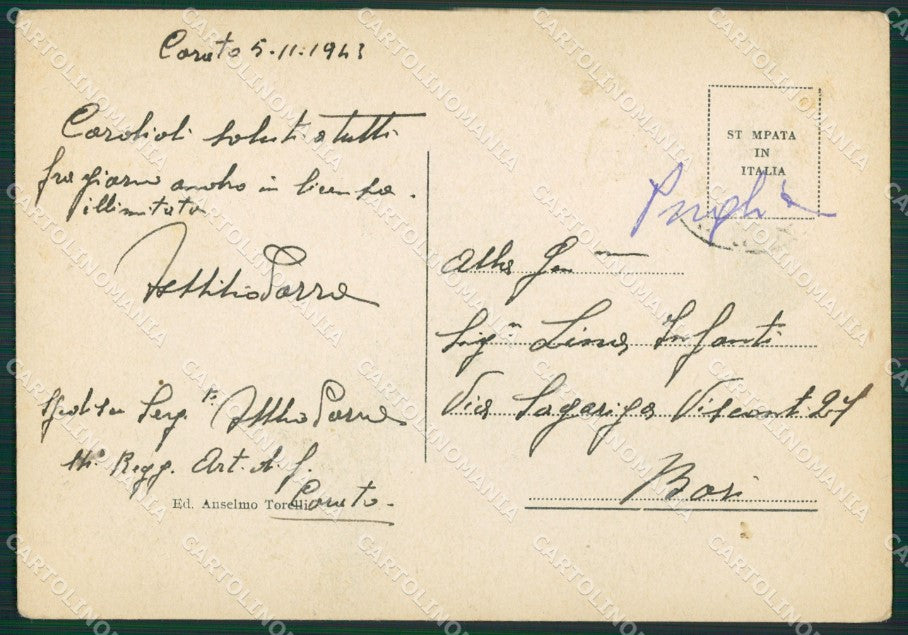 Corato 5-11-1943
Cordiali saluti a tutti
fra giorni andro in licenza
illimitata
Attilio Parra
Serg. Attilio Parra
Regg. Art. A. f.
Corato.
Ed. Anselmo Torelli
ST MPATA
IN
ITALIA
Puglie
Alla Gen
Sig.na Lina Infanti
Via Sagariga Visconti 27
Bari
CARTOLINOMANIA